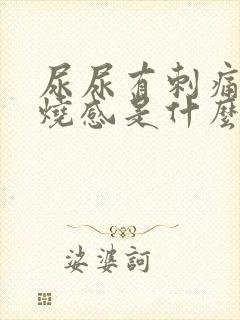 尿尿有刺痛
燒感是什麼
娑婆訶